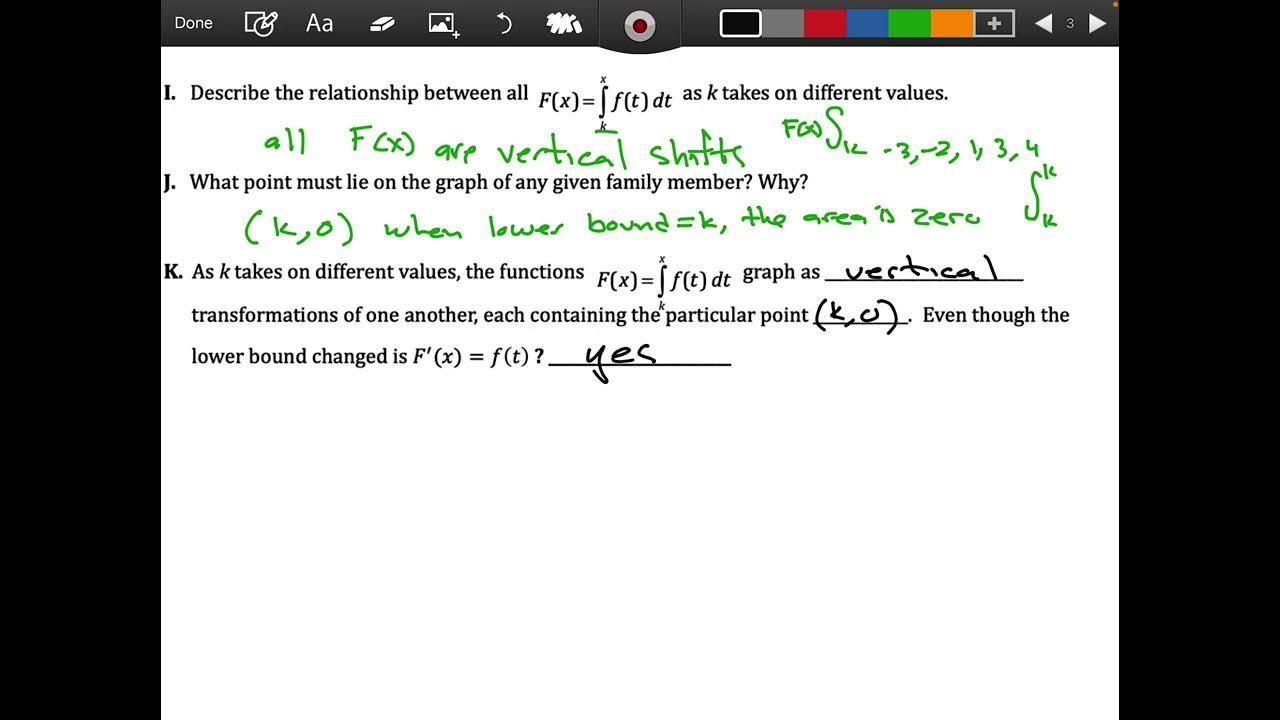 Done Aa 3
I. Describe the relationship between all F(x) = ∫ₖˣ f(t) dt as k takes on different values.
all F(x) are vertical shifts F(x) ∫ₖ -3, -2, 1, 3, 4
J. What point must lie on the graph of any given family member? Why?
(k, 0) when lower bound = k, the area is zero ∫ₖᵏ
K. As k takes on different values, the functions F(x) = ∫ₖˣ f(t) dt graph as vertical
transformations of one another, each containing the particular point (k, 0). Even though the
lower bound changed is F′(x) = f(t) ? yes